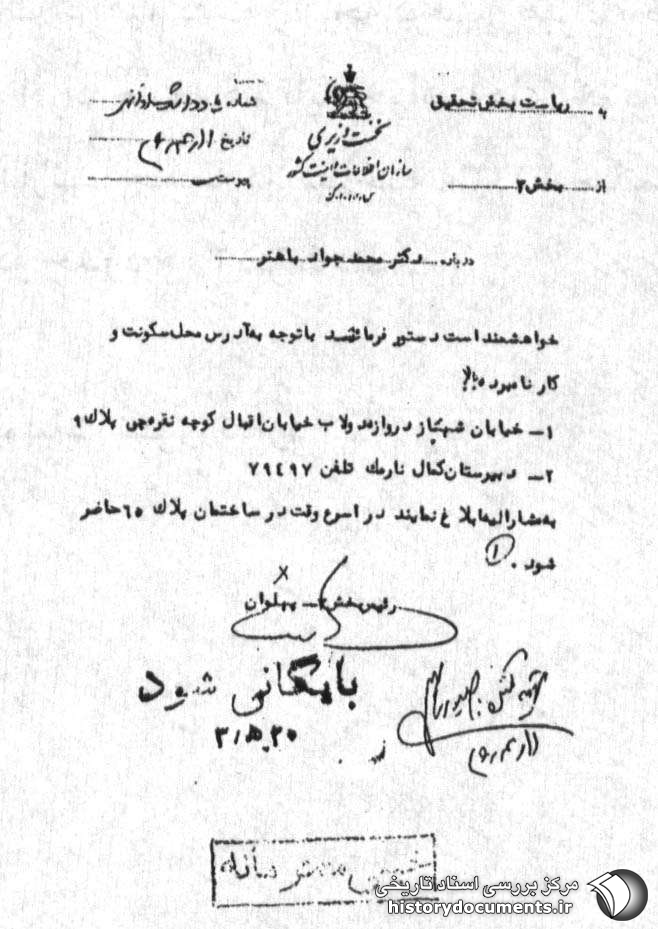 به ریاست بخش تحقیق
شماره
نخست وزیری
تاریخ
سازمان اطلاعات و امنیت کشور
از بخش ۳
پیوست
س.ا.و.ا.ک
درباره دکتر محمد جواد باهنر
خواهشمند است دستور فرمائید با توجه به آدرس محل سکونت و
کار نامبرده بالا
۱ـ خیابان شهباز دروازه دولاب خیابان اقبال کوچه نقره‌چی پلاک ۹
۲ـ دبیرستان کمال نارمک تلفن ۷۹٤۹۷
به مشارالیه ابلاغ نمایند در اسرع وقت در ساختمان پلاک ٦٥ حاضر
شود . ۱
رئیس بخش ۳ــ پهلوان
بایگانی شود
خیلی محرمانه
مرکز بررسی اسناد تاریخی
historydocuments.ir